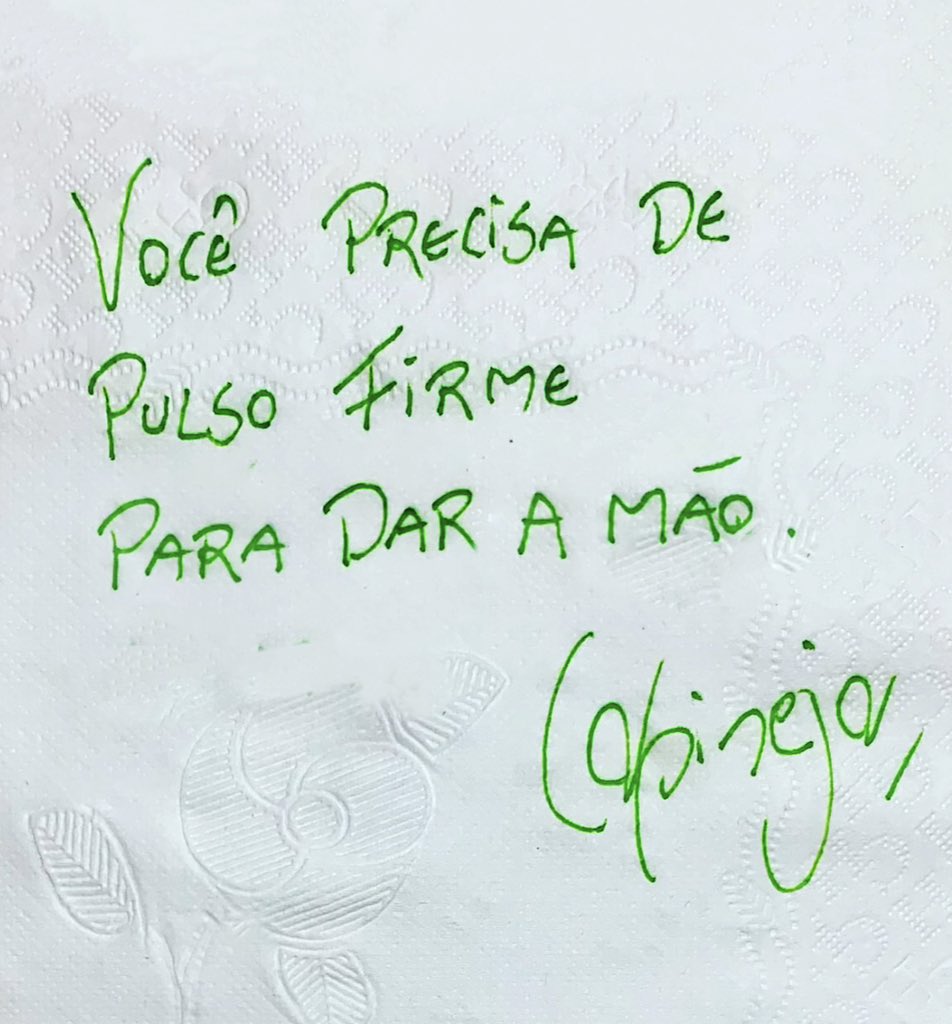 VOCÊ PRECISA DE
PULSO FIRME
PARA DAR A MÃO.
Carpinejar,